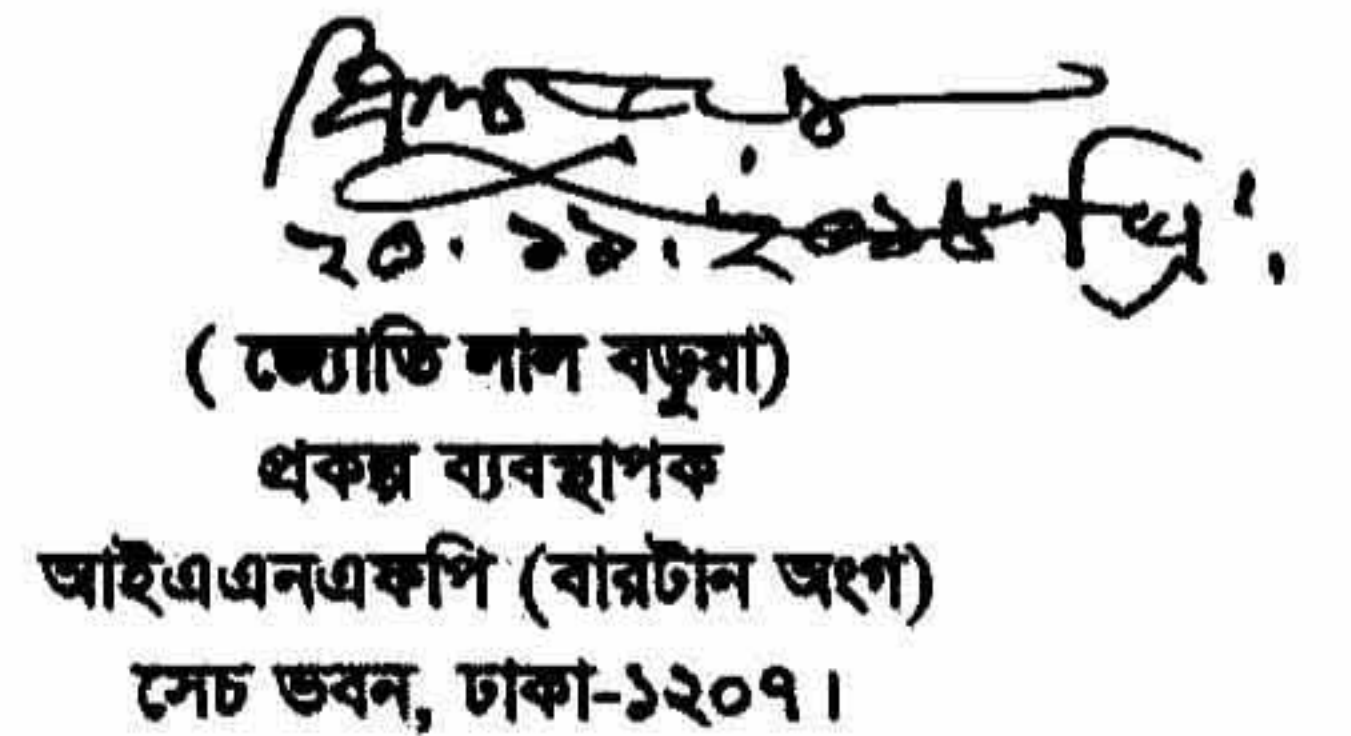 ২০.১১.২০১৬ খ্রি:.
( জ্যোতি লাল বড়ুয়া)
প্রকল্প ব্যবস্থাপক
আইএএনএফপি (বারটান অংগ)
সেচ ভবন, ঢাকা-১২০৭।